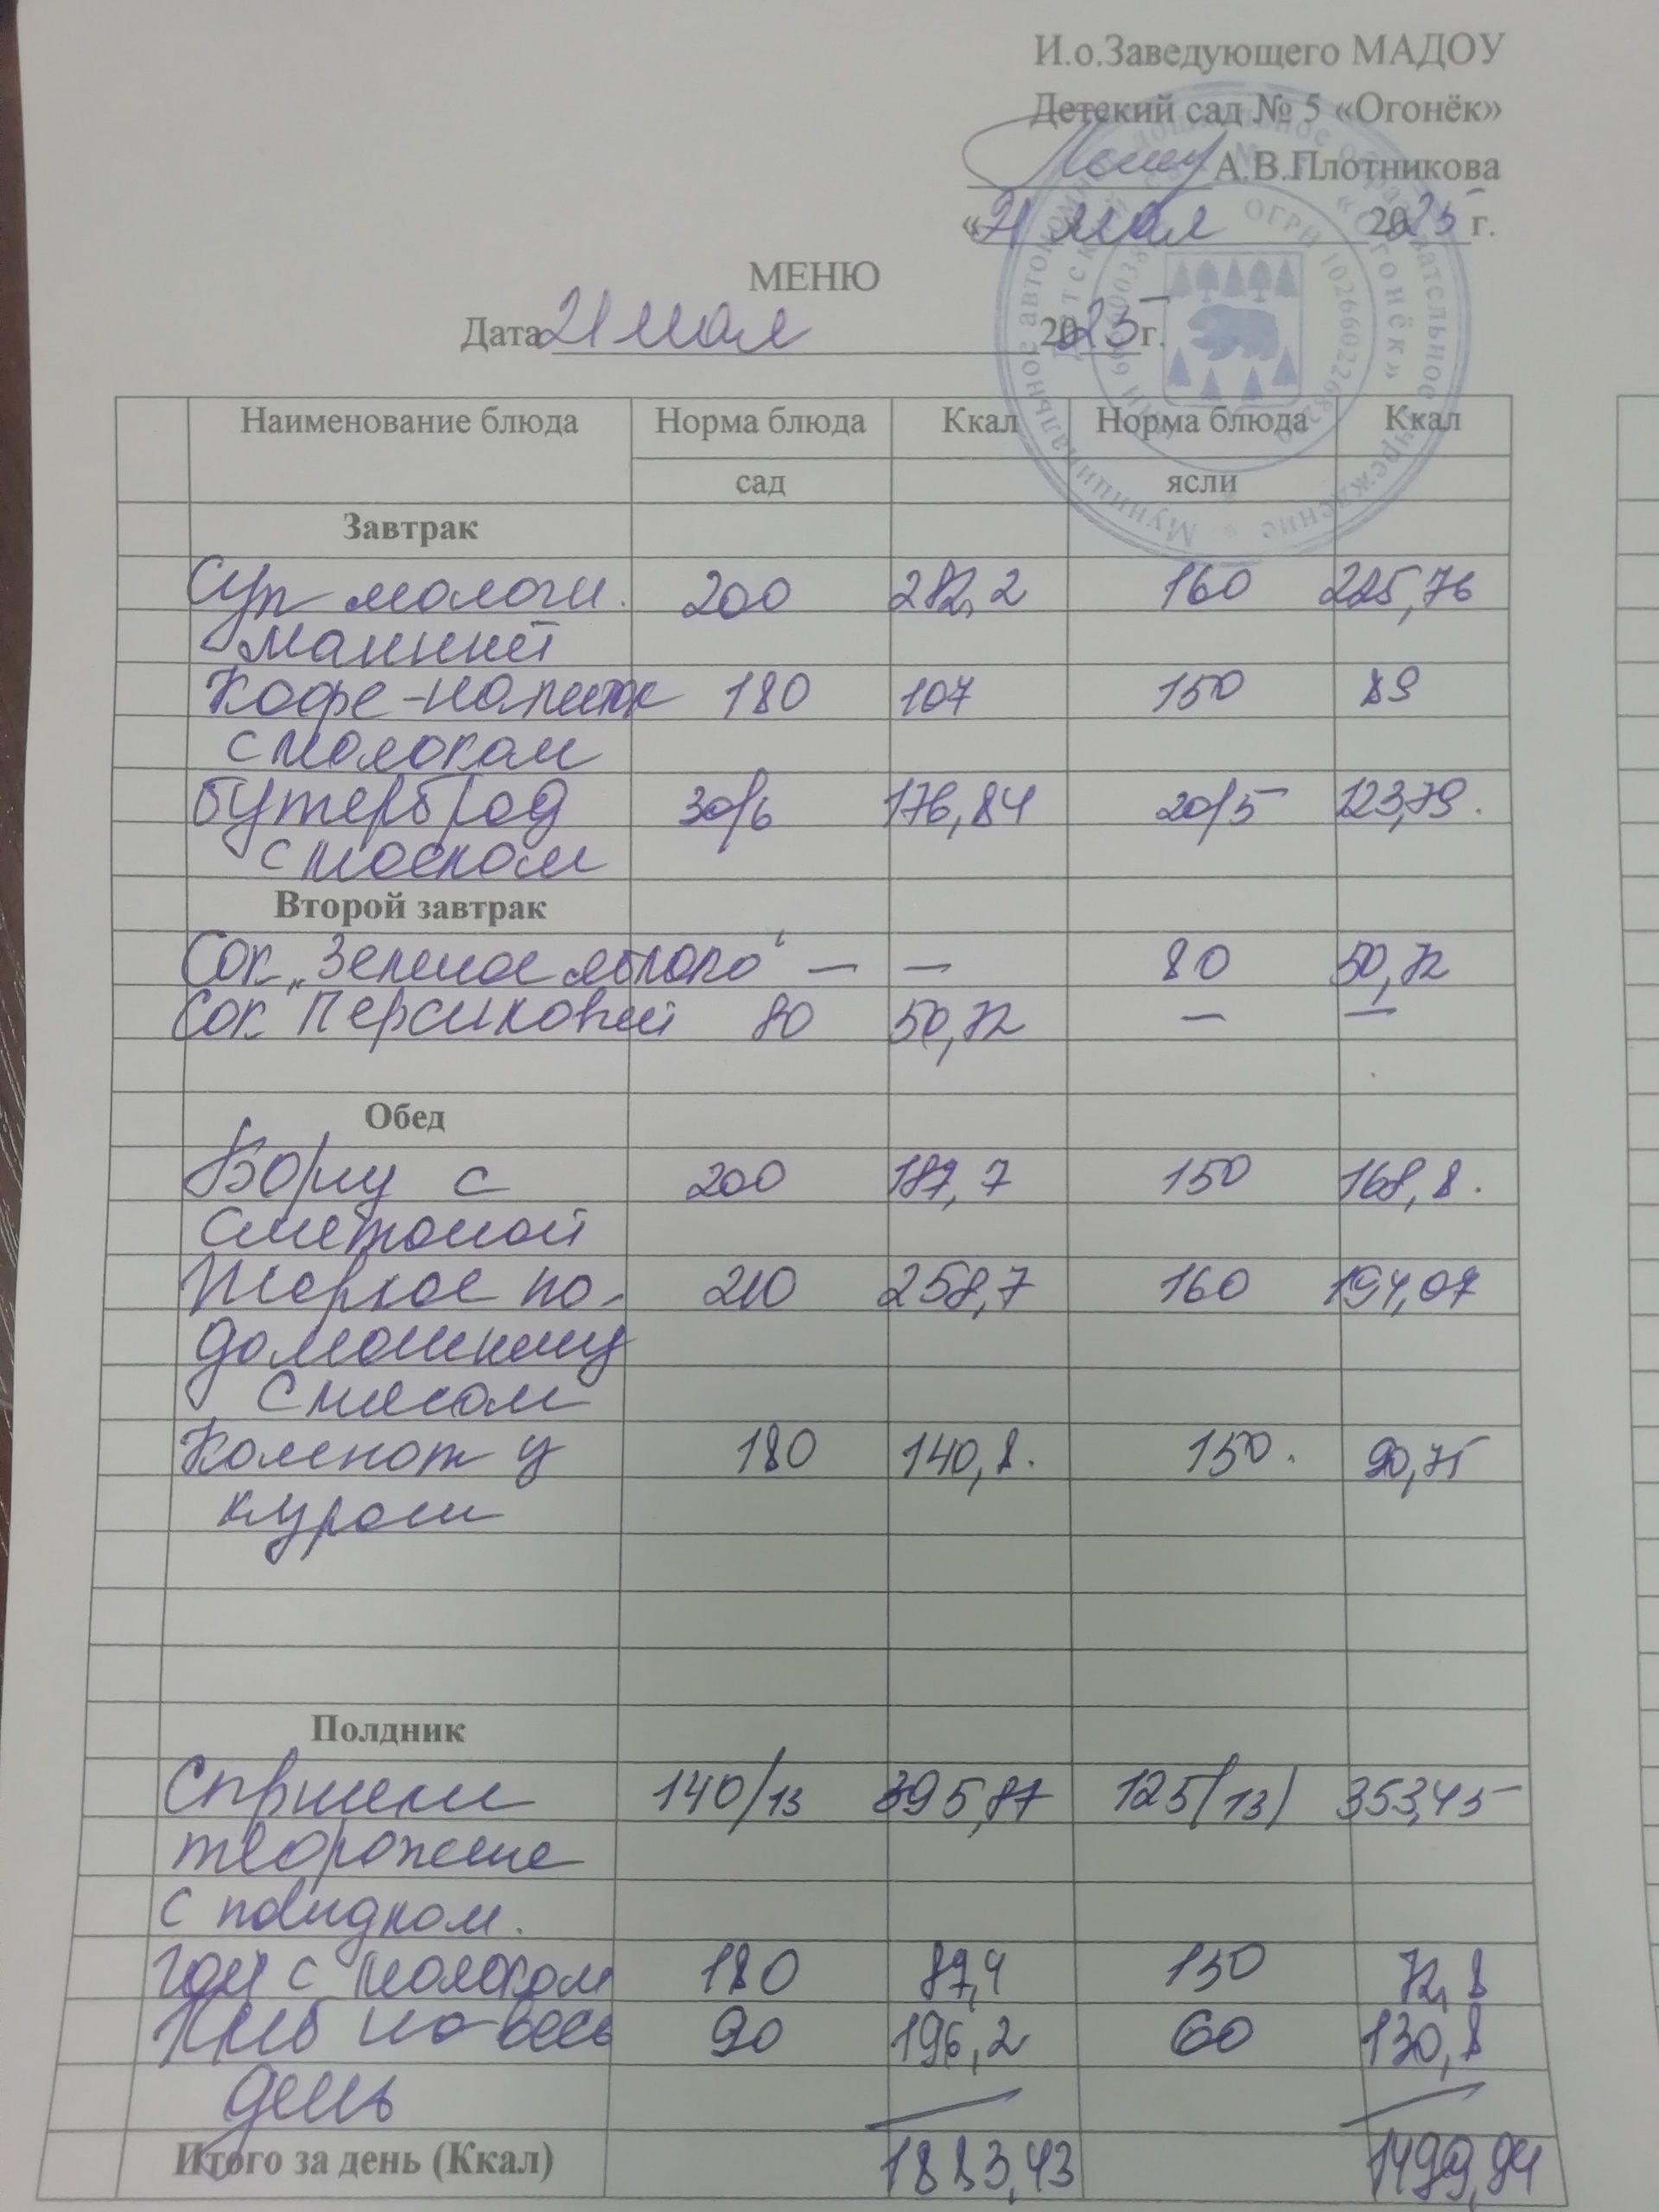 И.о.Заведующего МАДОУ
Детский сад № 5 «Огонёк»
А.В.Плотникова
«21 мая 2025 г.
МЕНЮ
Дата 21 мая 2025 г.
Наименование блюда Норма блюда Ккал Норма блюда Ккал
сад ясли
Завтрак
Суп молочн. 200 282,2 160 225,76
манный
Кофе-напиток 180 107 150 89
с молоком
Бутерброд 30/6 176,84 20/5 123,79.
с маслом
Второй завтрак
Сок „Зеленое яблоко“ — — 80 50,72
Сок Персиковый 80 50,72 — —
Обед
Борщ с 200 187,7 150 168,8.
сметаной
Жаркое по- 210 258,7 160 194,07
домашнему
с мясом
Компот у 180 140,8. 150. 90,75
кураги
Полдник
140/13 395,87 125/13/ 353,45
творожные
с повидлом.
Чай с молоком 180 87,4 150 72,8
Хлеб на весь 90 196,2 60 130,8
день
Итого за день (Ккал) 1883,43 1499,94